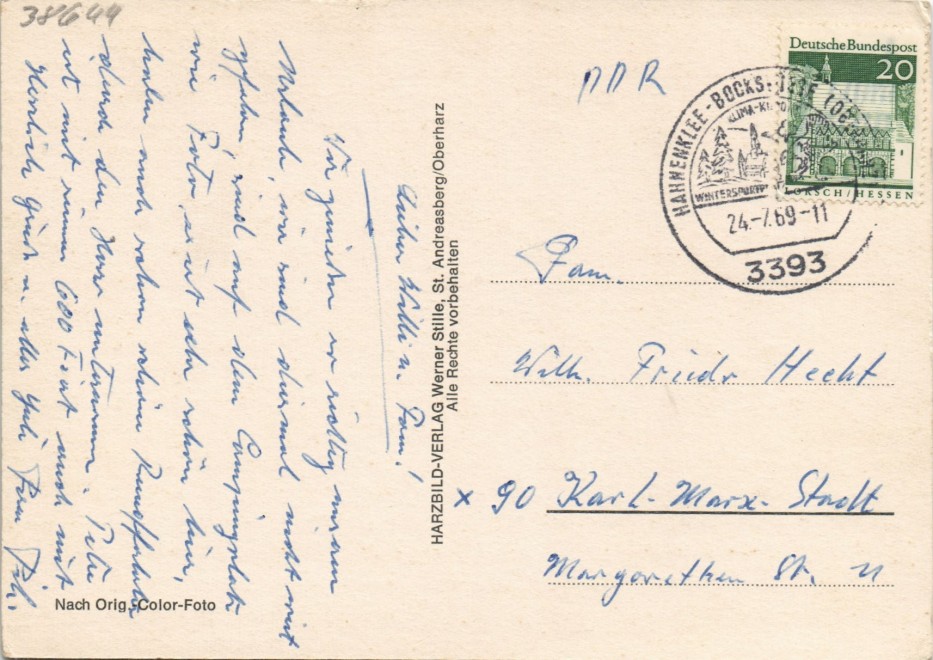 38644
Lieber Willi u. Fam.!
Wir genießen so richtig unsern
Urlaub, wir sind diesmal nicht weit
gefahren, sind auf dem Campingplatz
wie Foto, es ist sehr schön hier,
haben auch schon schöne Rundfahrten
durch den Harz unternom. Peter
ist mit seinem 600 Fiat auch mit
Herzliche Grüße u. alles Gute Fam
HARZBILD-VERLAG Werner Stille, St. Andreasberg/Oberharz
Alle Rechte vorbehalten
Nach Orig.-Color-Foto
DDR
Deutsche Bundespost
20
LORSCH/HESSEN
HAHNENKLEE-BOCKS
KLIMA-KURO
WINTERSPORT
24.-7.69-11
3393
Fam.
Wilh. Friedr Hecht
x 90 Karl-Marx-Stadt
Margarethen St. 11